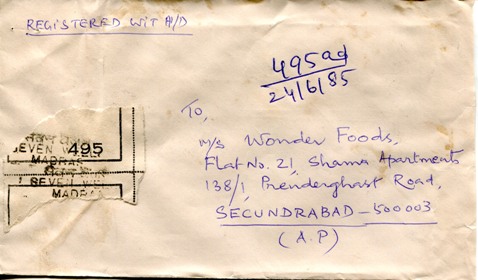 REGISTERED WIT A/D
495ad
24/6/85
To,
M/s Wonder Foods,
Flat No. 21, Shama Apartments
138/1, Prenderghast Road,
SECUNDRABAD - 500003
(A.P)
SEVEN 495
MADRAS
SEVEN
MADRAS